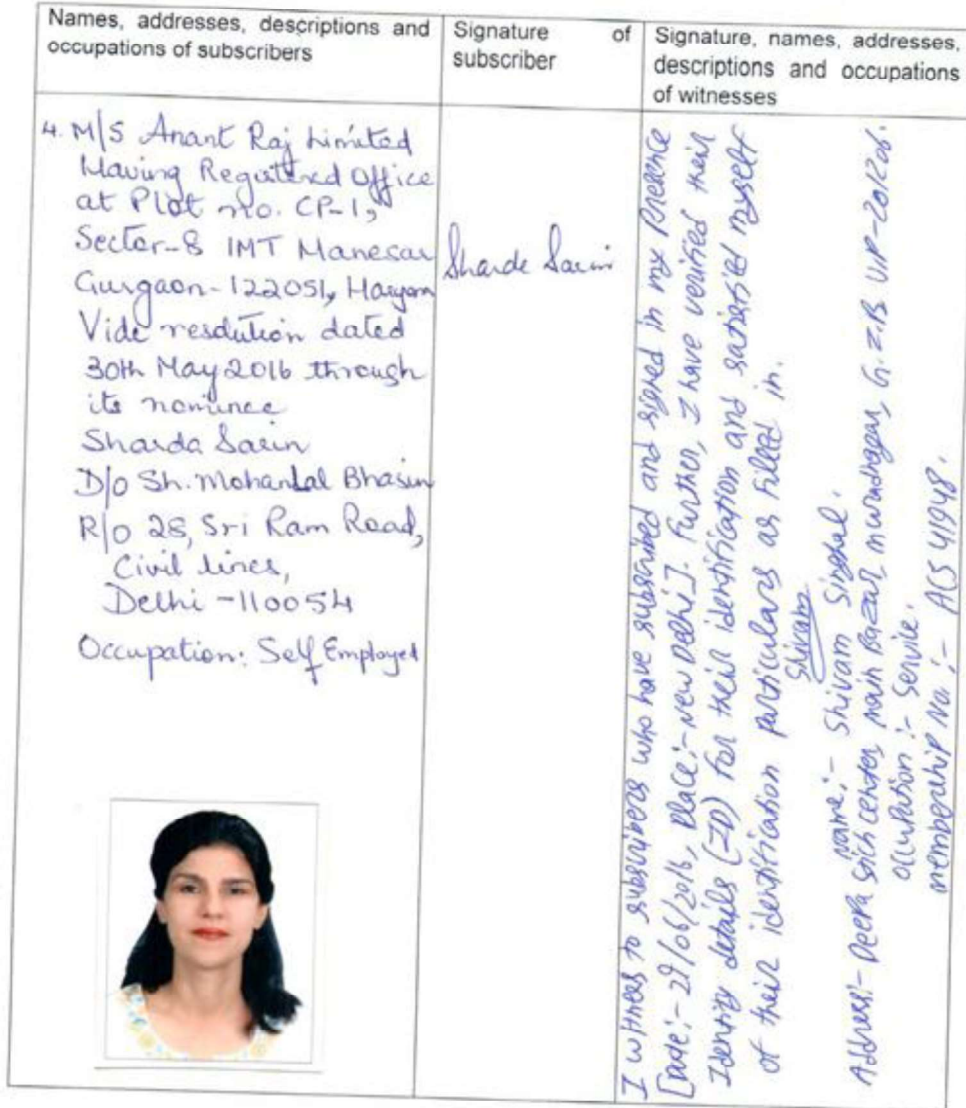 Names, addresses, descriptions and
occupations of subscribers
Signature of
subscriber
Signature, names, addresses,
descriptions and occupations
of witnesses
4. M/S Anant Raj Limited
Having Registered Office
at Plot no. CP-1,
Sector-8 IMT Manesar
Gurgaon-122051, Haryana
Vide resolution dated
30th May 2016 through
its nominee
Sharda Sarin
D/o Sh. Mohanlal Bhasin
R/o 28, Sri Ram Road,
Civil lines,
Delhi-110054
Occupation: Self Employed
Sharda Sarin
I witness to subscribers who have subscribed and signed in my presence
[Date:- 29/06/2016, Place:- New Delhi]. Further, I have verified their
Identity details (ID) for their identification and satisfied myself
of their identification particulars as filled in.
Shivam
Name:- Shivam Singhal.
Address:- Deepa center, main Bazar, muradnagar, GZB UP-201206.
occupation :- Service.
membership No :- ACS 41948.